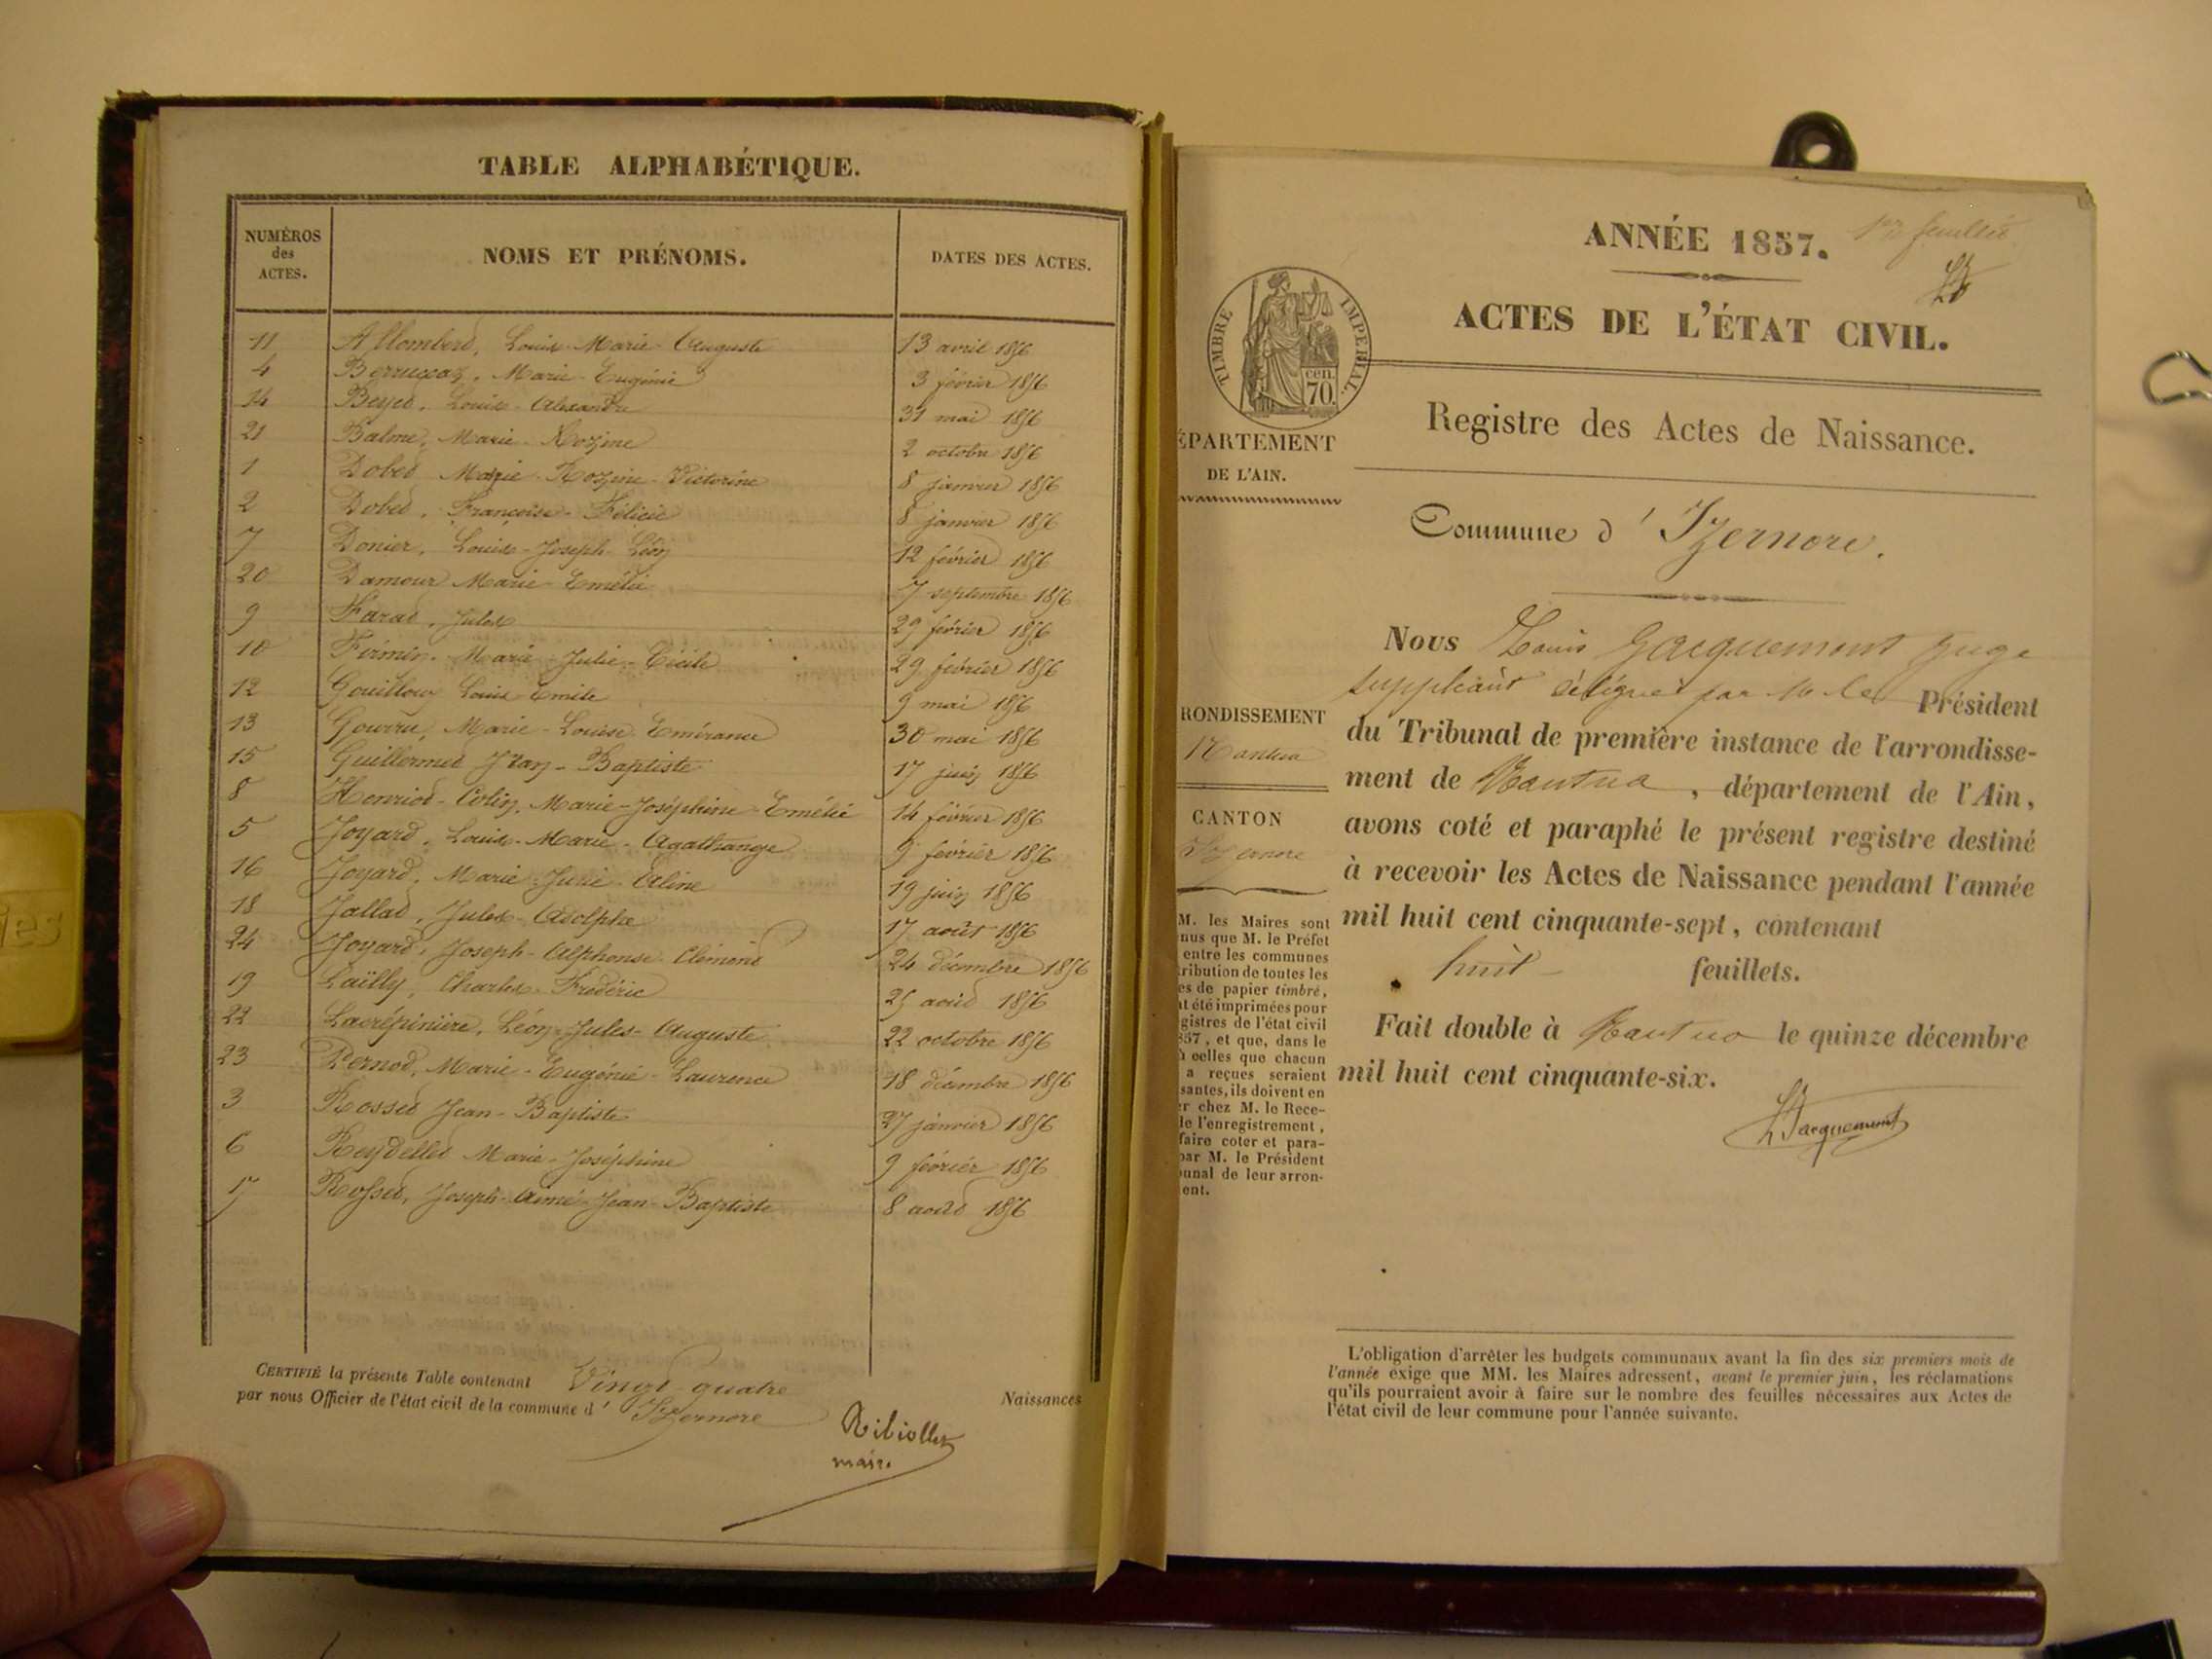 TABLE ALPHABÉTIQUE.
NUMÉROS des ACTES. NOMS ET PRÉNOMS. DATES DES ACTES.
11 Allomberd, Louis-Marie-Auguste 13 avril 1856
4 Marie-Eugénie 3 février 1856
14 Beyed, Louis-Alexandre 31 mai 1856
21 Balme, Marie-Rozine 2 octobre 1856
1 Dobed Marie-Rozine-Victorine 8 janvier 1856
2 Dobed, Françoise-Félicie 8 janvier 1856
7 Donier, Louis-Joseph-Léon 12 février 1856
20 Damour Marie-Emélie 7 septembre 1856
9 Farad, Jules 29 février 1856
10 Firmin, Marie-Julie-Cécile 29 février 1856
12 Gouilloux Louis Emile 9 mai 1856
13 Gourru, Marie-Louise Emérance 30 mai 1856
15 Guillermed Jean-Baptiste 17 juin 1856
8 Henriod-Colin, Marie-Joséphine-Emélie 14 février 1856
5 Joyard, Louis-Marie-Agathange 9 février 1856
16 Joyard, Marie-Junie-Aline 19 juin 1856
18 Jallad, Jules-Adolphe 17 août 1856
24 Joyard, Joseph-Alphonse-Clémend 24 décembre 1856
19 Lailly, Charles-Frédéric 25 août 1856
22 Lacrépinière, Léon-Jules-Auguste 22 octobre 1856
23 Pernod, Marie-Eugénie-Laurence 18 décembre 1856
3 Rossed Jean-Baptiste 27 janvier 1856
6 Reydelled Marie-Joséphine 9 février 1856
17 Rossed, Joseph-Aimé-Jean-Baptiste 8 août 1856
CERTIFIÉ la présente Table contenant Vingt-quatre Naissances
par nous Officier de l'état civil de la commune d' Izernore
Ribiollet
maire
ANNÉE 1857. 1er feuillet
ACTES DE L'ÉTAT CIVIL.
TIMBRE IMPÉRIAL.
cen.
70.
ÉPARTEMENT
DE L'AIN.
Registre des Actes de Naissance.
Commune d' Izernore.
RONDISSEMENT
Nantua
CANTON
Izernore
M. les Maires sont
nus que M. le Préfet
entre les communes
tribution de toutes les
es de papier timbré,
nt été imprimées pour
gistres de l'état civil
857, et que, dans le
à celles que chacun
a reçues seraient
santes, ils doivent en
er chez M. le Rece-
de l'enregistrement,
faire coter et para-
par M. le Président
unal de leur arron-
ent.
Nous Louis Jacquemont juge
suppléant délégué par M le Président
du Tribunal de première instance de l'arrondisse-
ment de Nantua, département de l'Ain,
avons coté et paraphé le présent registre destiné
à recevoir les Actes de Naissance pendant l'année
mil huit cent cinquante-sept, contenant
huit feuillets.
Fait double à Nantua le quinze décembre
mil huit cent cinquante-six.
L Jacquemont
L'obligation d'arrêter les budgets communaux avant la fin des six premiers mois de
l'année exige que MM. les Maires adressent, avant le premier juin, les réclamations
qu'ils pourraient avoir à faire sur le nombre des feuilles nécessaires aux Actes de
l'état civil de leur commune pour l'année suivante.